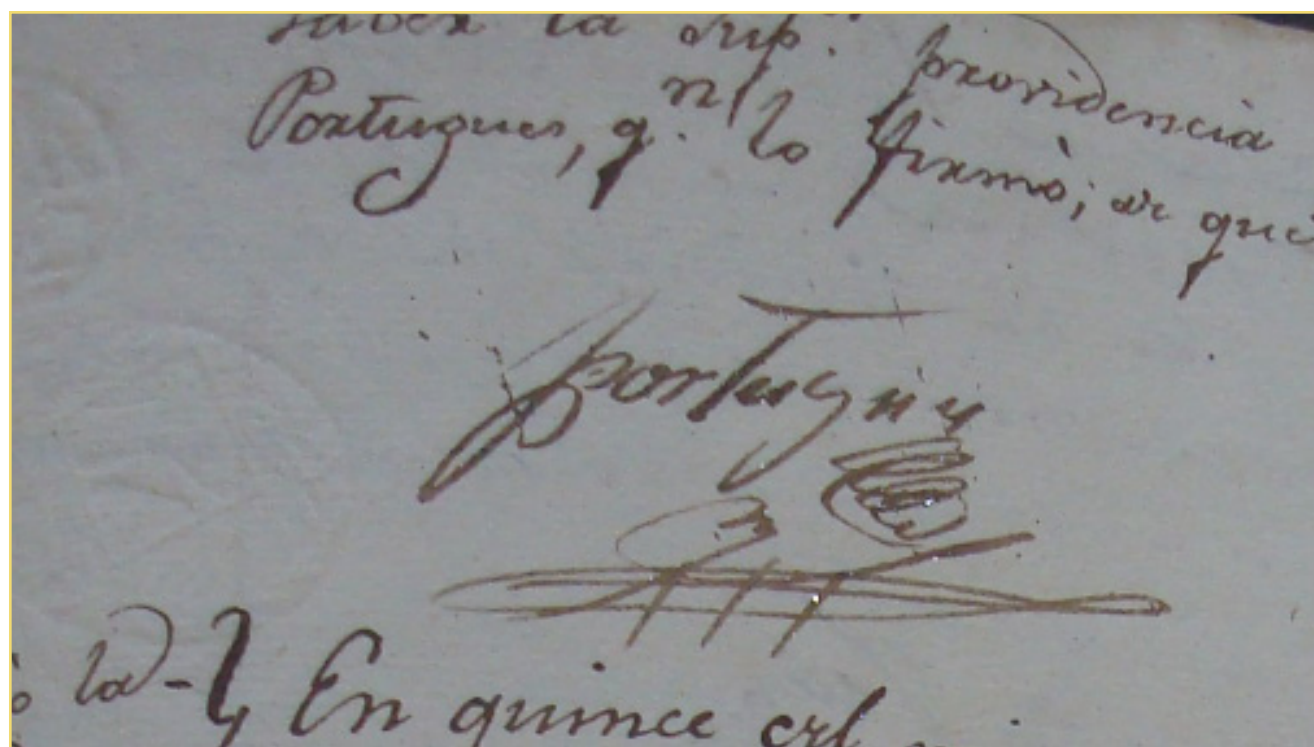 saber la Sup.ᵒʳ providencia
Portugues, q.ⁿ lo firmò; de que
Portugues
la - En quince del